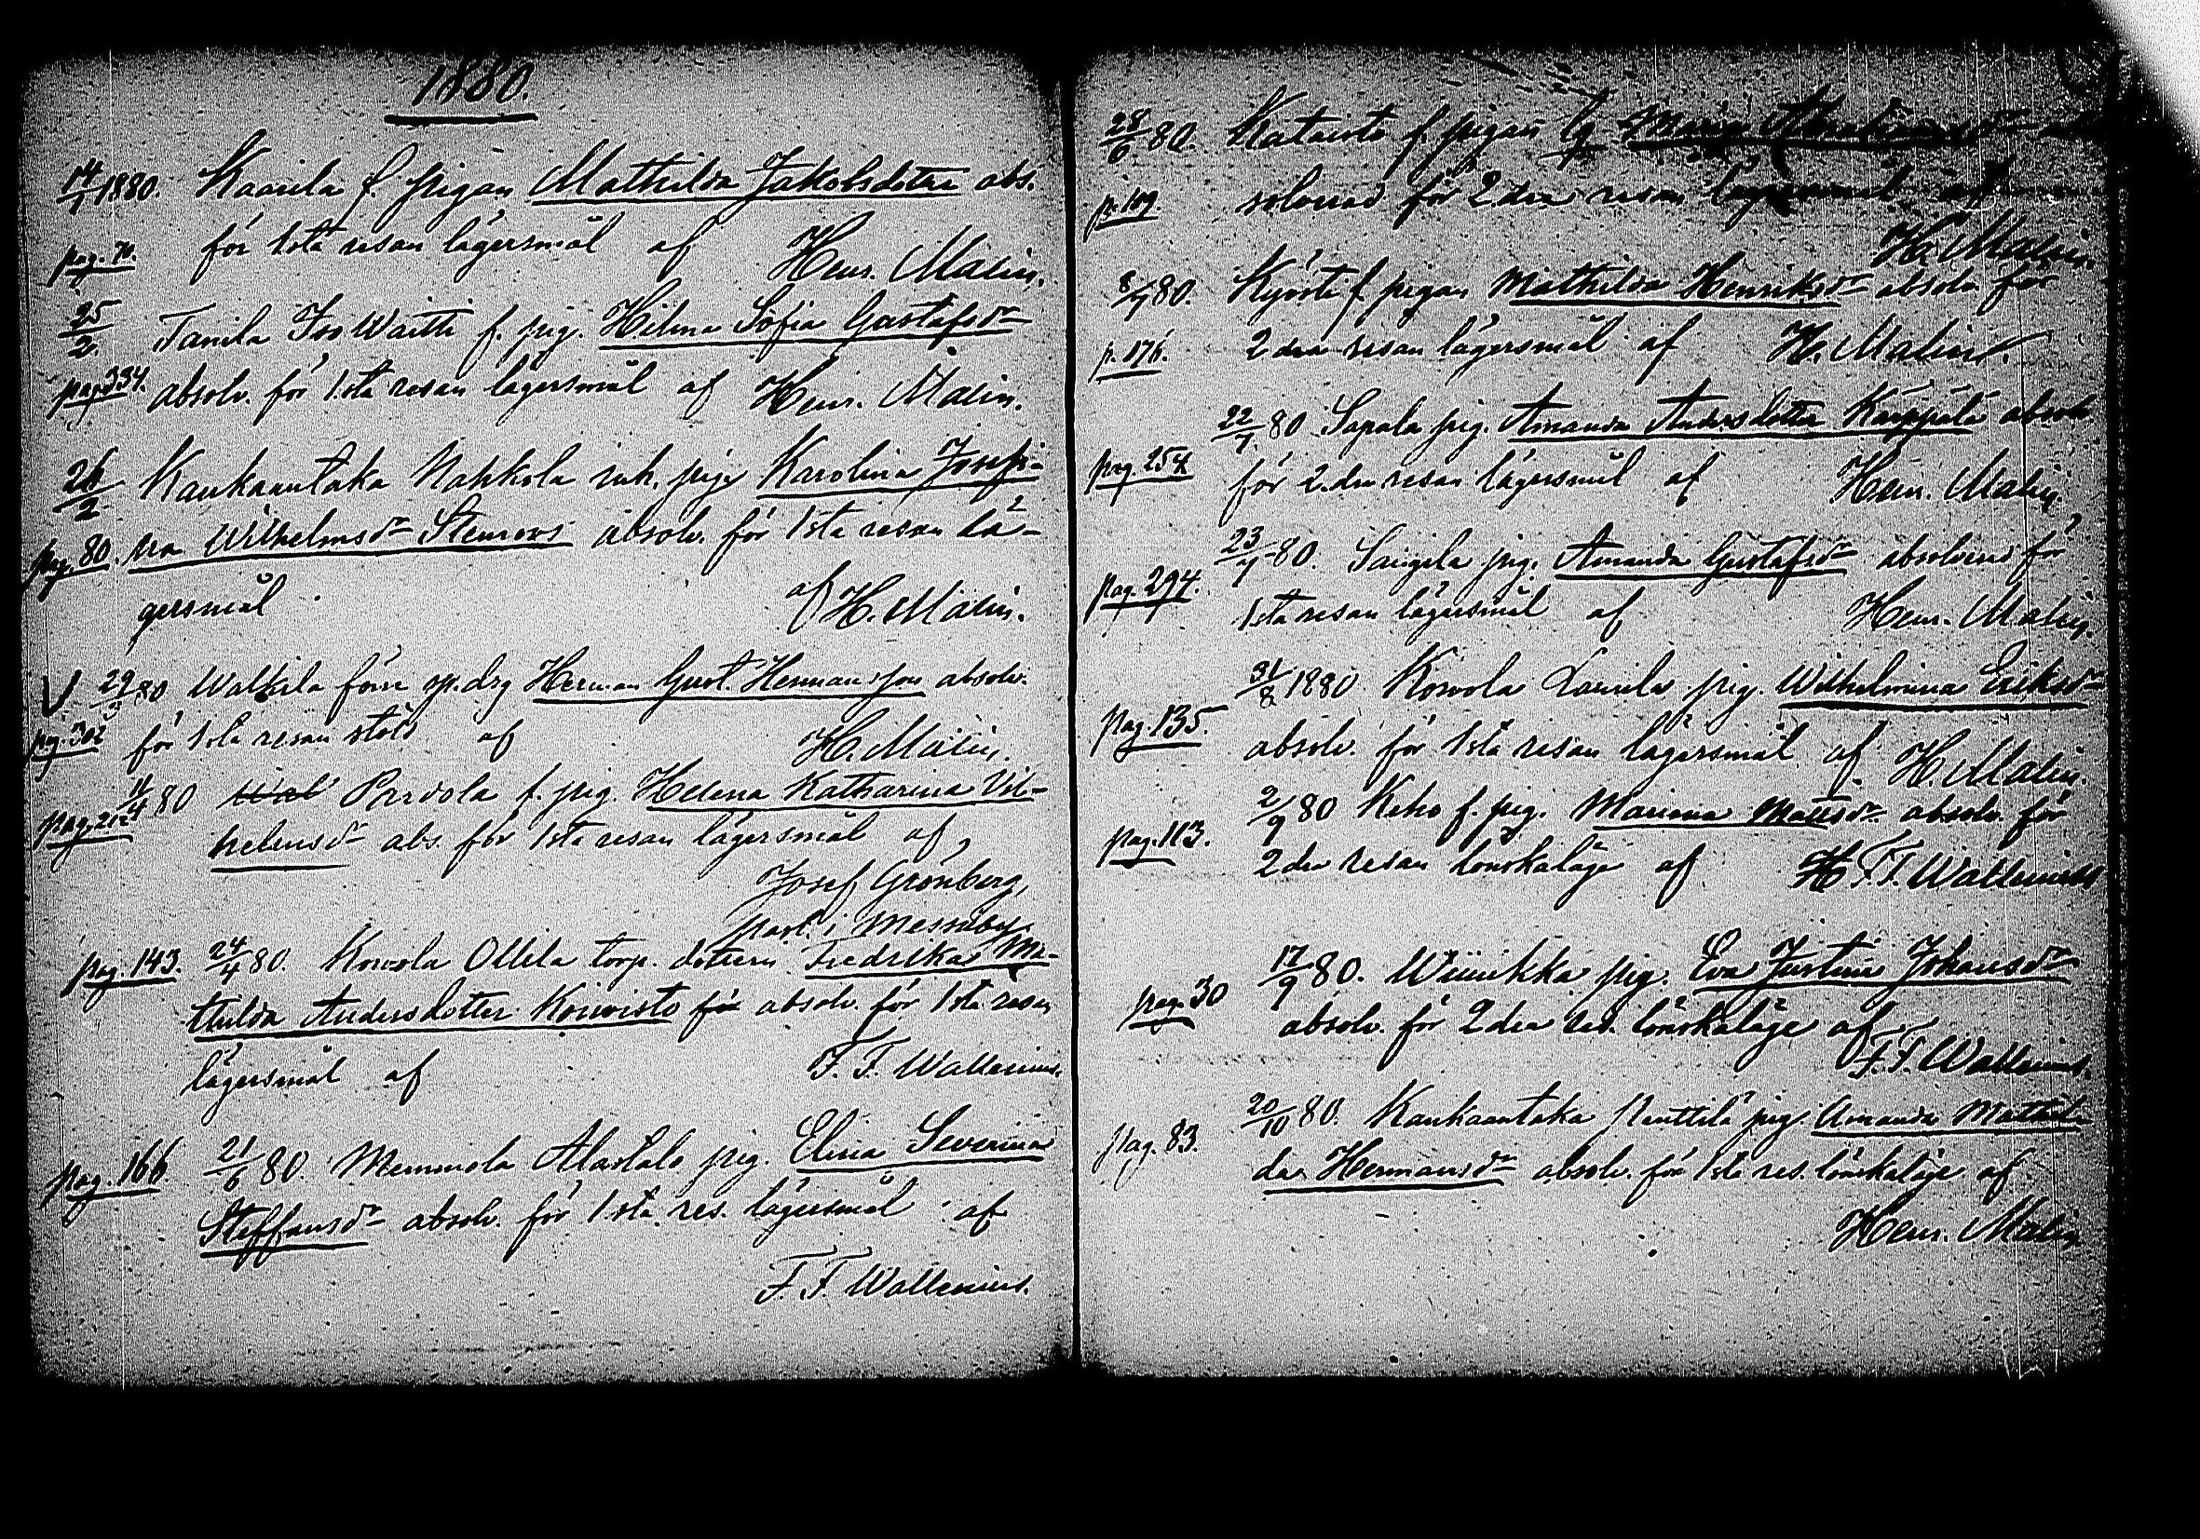 1880.
14/1 1880. Kaarila f. pigan Mathilda Jakobsdotter abs.
pag. 70. för 1sta resan lägersmål af Henr. Malin.
25/2. Tanila Iso Waitti f. pig. Hilma Sofia Gustafsdr
pag 334. absolv. för 1sta resan lägersmål af Henr. Malin.
26/2 Kaukaantaka Nahkola inh. pig. Karolina Josefi-
pag. 80. na Wilhelmsdr Stenroos absolv. för 1sta resan lä-
gersmål af H. Malin.
29/3 80 Walkila förre drg Herman Gust. Hermansson absolv.
pag. 302 för 1sta resan stöld af H. Malin.
11/4 80 Parvola f. pig. Helena Katharina Vil-
pag. 212 helmsdr abs. för 1sta resan lägersmål af
Josef Grönberg,
past. i Messuby.
pag. 143. 24/4 80. Kowola Ollila torp. dottern Fredrika Ma-
thilda Andersdotter Koiwisto för absolv. för 1sta resan
lägersmål af F. F. Wallenius.
pag. 166 21/6 80. Memmola Alastalo pig. Elina Severina
Steffansdr absolv. för 1sta res. lägersmål af
F. F. Wallenius.
28/6 80. Kataisto f. pigan Maria
p. 109 solverad för 2dra resan lägersmål af
H. Malin.
8/7 80. Kyösti f. pigan Mathilda Henriksdr absolv för
p. 176. 2dra resan lägersmål af H. Malin.
22/7 80 Sapala pig. Amanda Andersdotter Kärppälä absolv
pag. 254 för 2.dra resan lägersmål af Henr. Malin.
23/7 80. Saigila pig. Amanda Gustafsdr absolverad för
pag. 294. 1sta resan lägersmål af Henr. Malin.
31/8 1880 Kowola Laurila pig. Wilhelmina Eriksdr
pag. 135. absolv. för 1sta resan lägersmål af H. Malin.
2/9 80 Keho f. pig. Mariana Mattsdr absolv. för
pag. 113. 2dra resan lönskaläge af F. F. Wallenius
17/9 80. Wiinikka pig. Eva Justina Johansdr
pag. 30 absolv. för 2dra res. lönskaläge af
F. F. Wallenius.
20/10 80. Kaukaantaka Penttilä pig. Amanda Mathil-
pag. 83. da Hermansdr absolv. för 1sta res. lönskaläge af
Henr. Malin